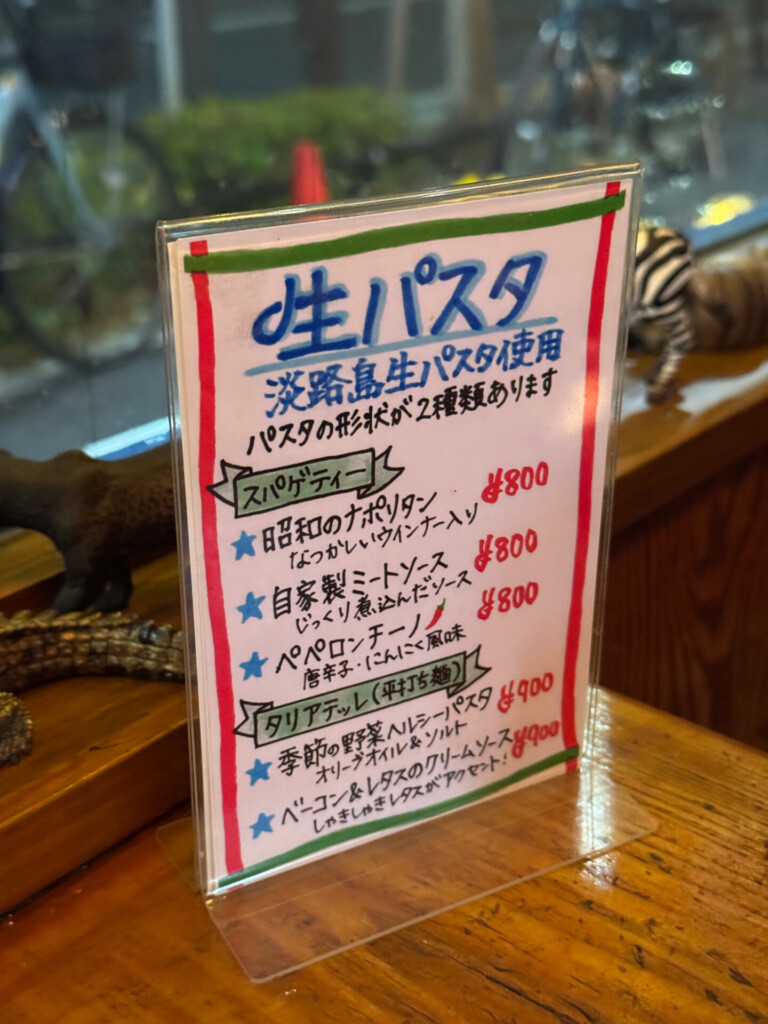 生パスタ
淡路島生パスタ使用
パスタの形状が2種類あります
スパゲティー
★昭和のナポリタン ¥800
なつかしいウインナー入り
★自家製ミートソース ¥800
じっくり煮込んだソース
★ペペロンチーノ ¥800
唐辛子・にんにく風味
タリアテッレ(平打ち麺)
★季節の野菜ヘルシーパスタ ¥900
オリーブオイル&ソルト
★ベーコン&レタスのクリームソース ¥900
しゃきしゃきレタスがアクセント!